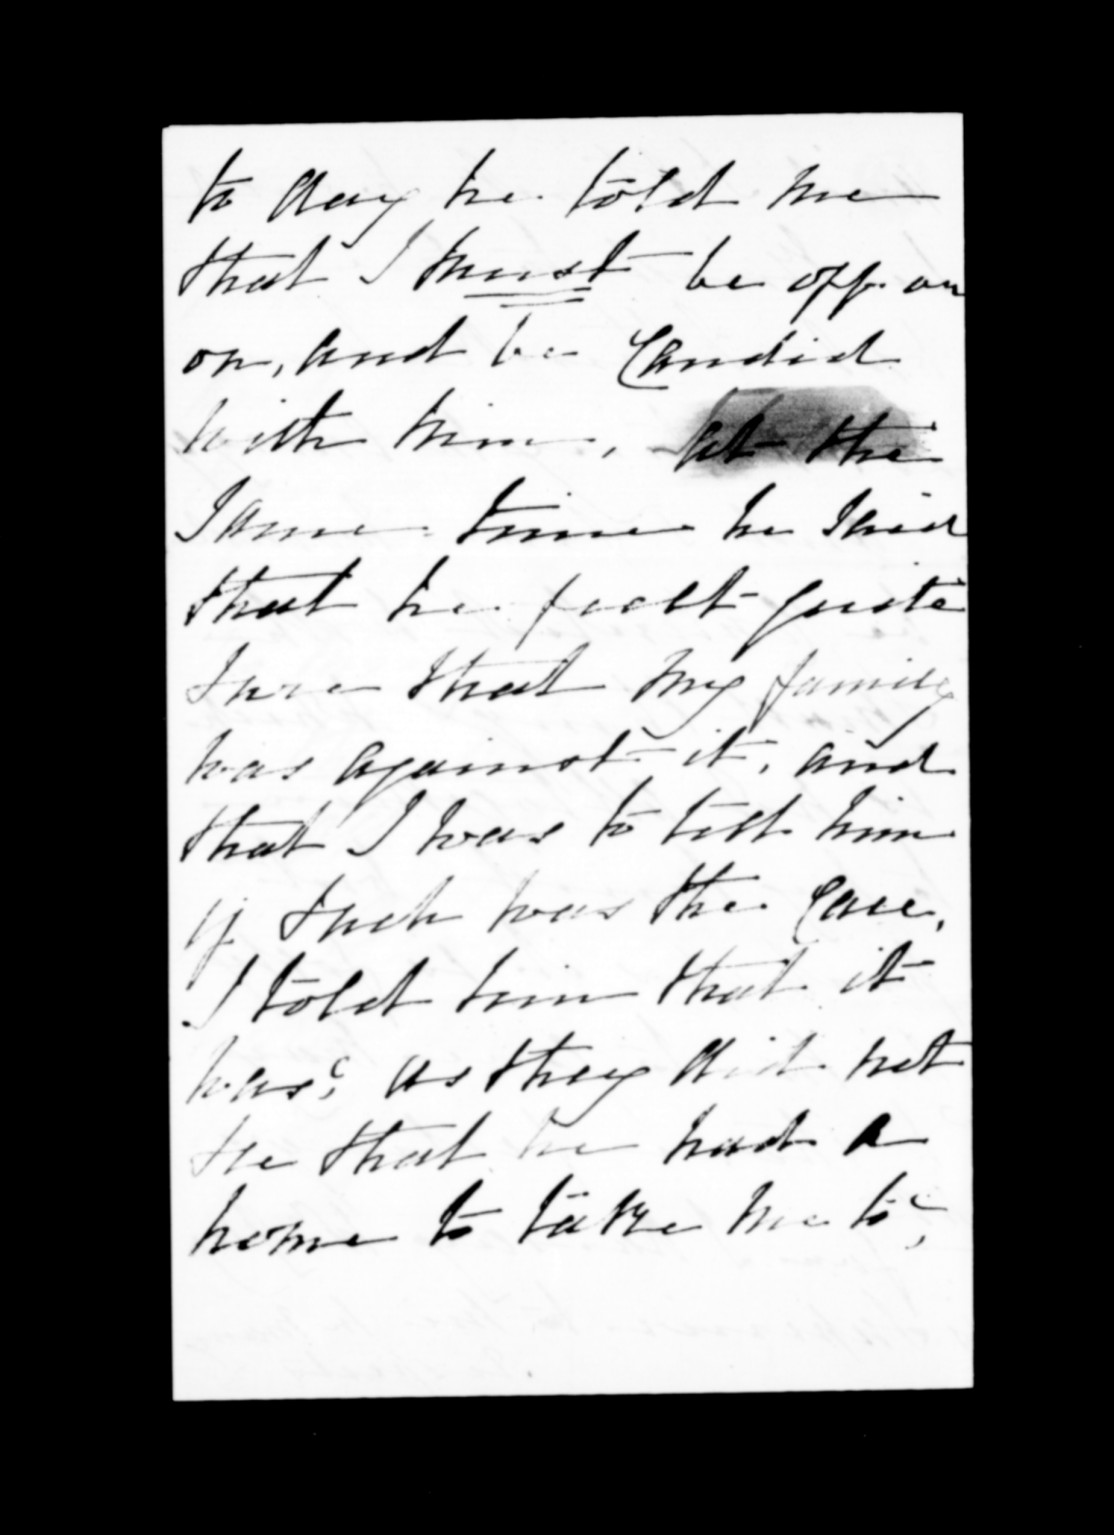 to day he told me
that I must be off or
on, and be Candid
with him, at the
same time he said
that he feelt quite
sure that my family
was against it, and
that I was to tell him
if such was the Case,
I told him that it
was; as they did not
se that he had a
home to take me to;